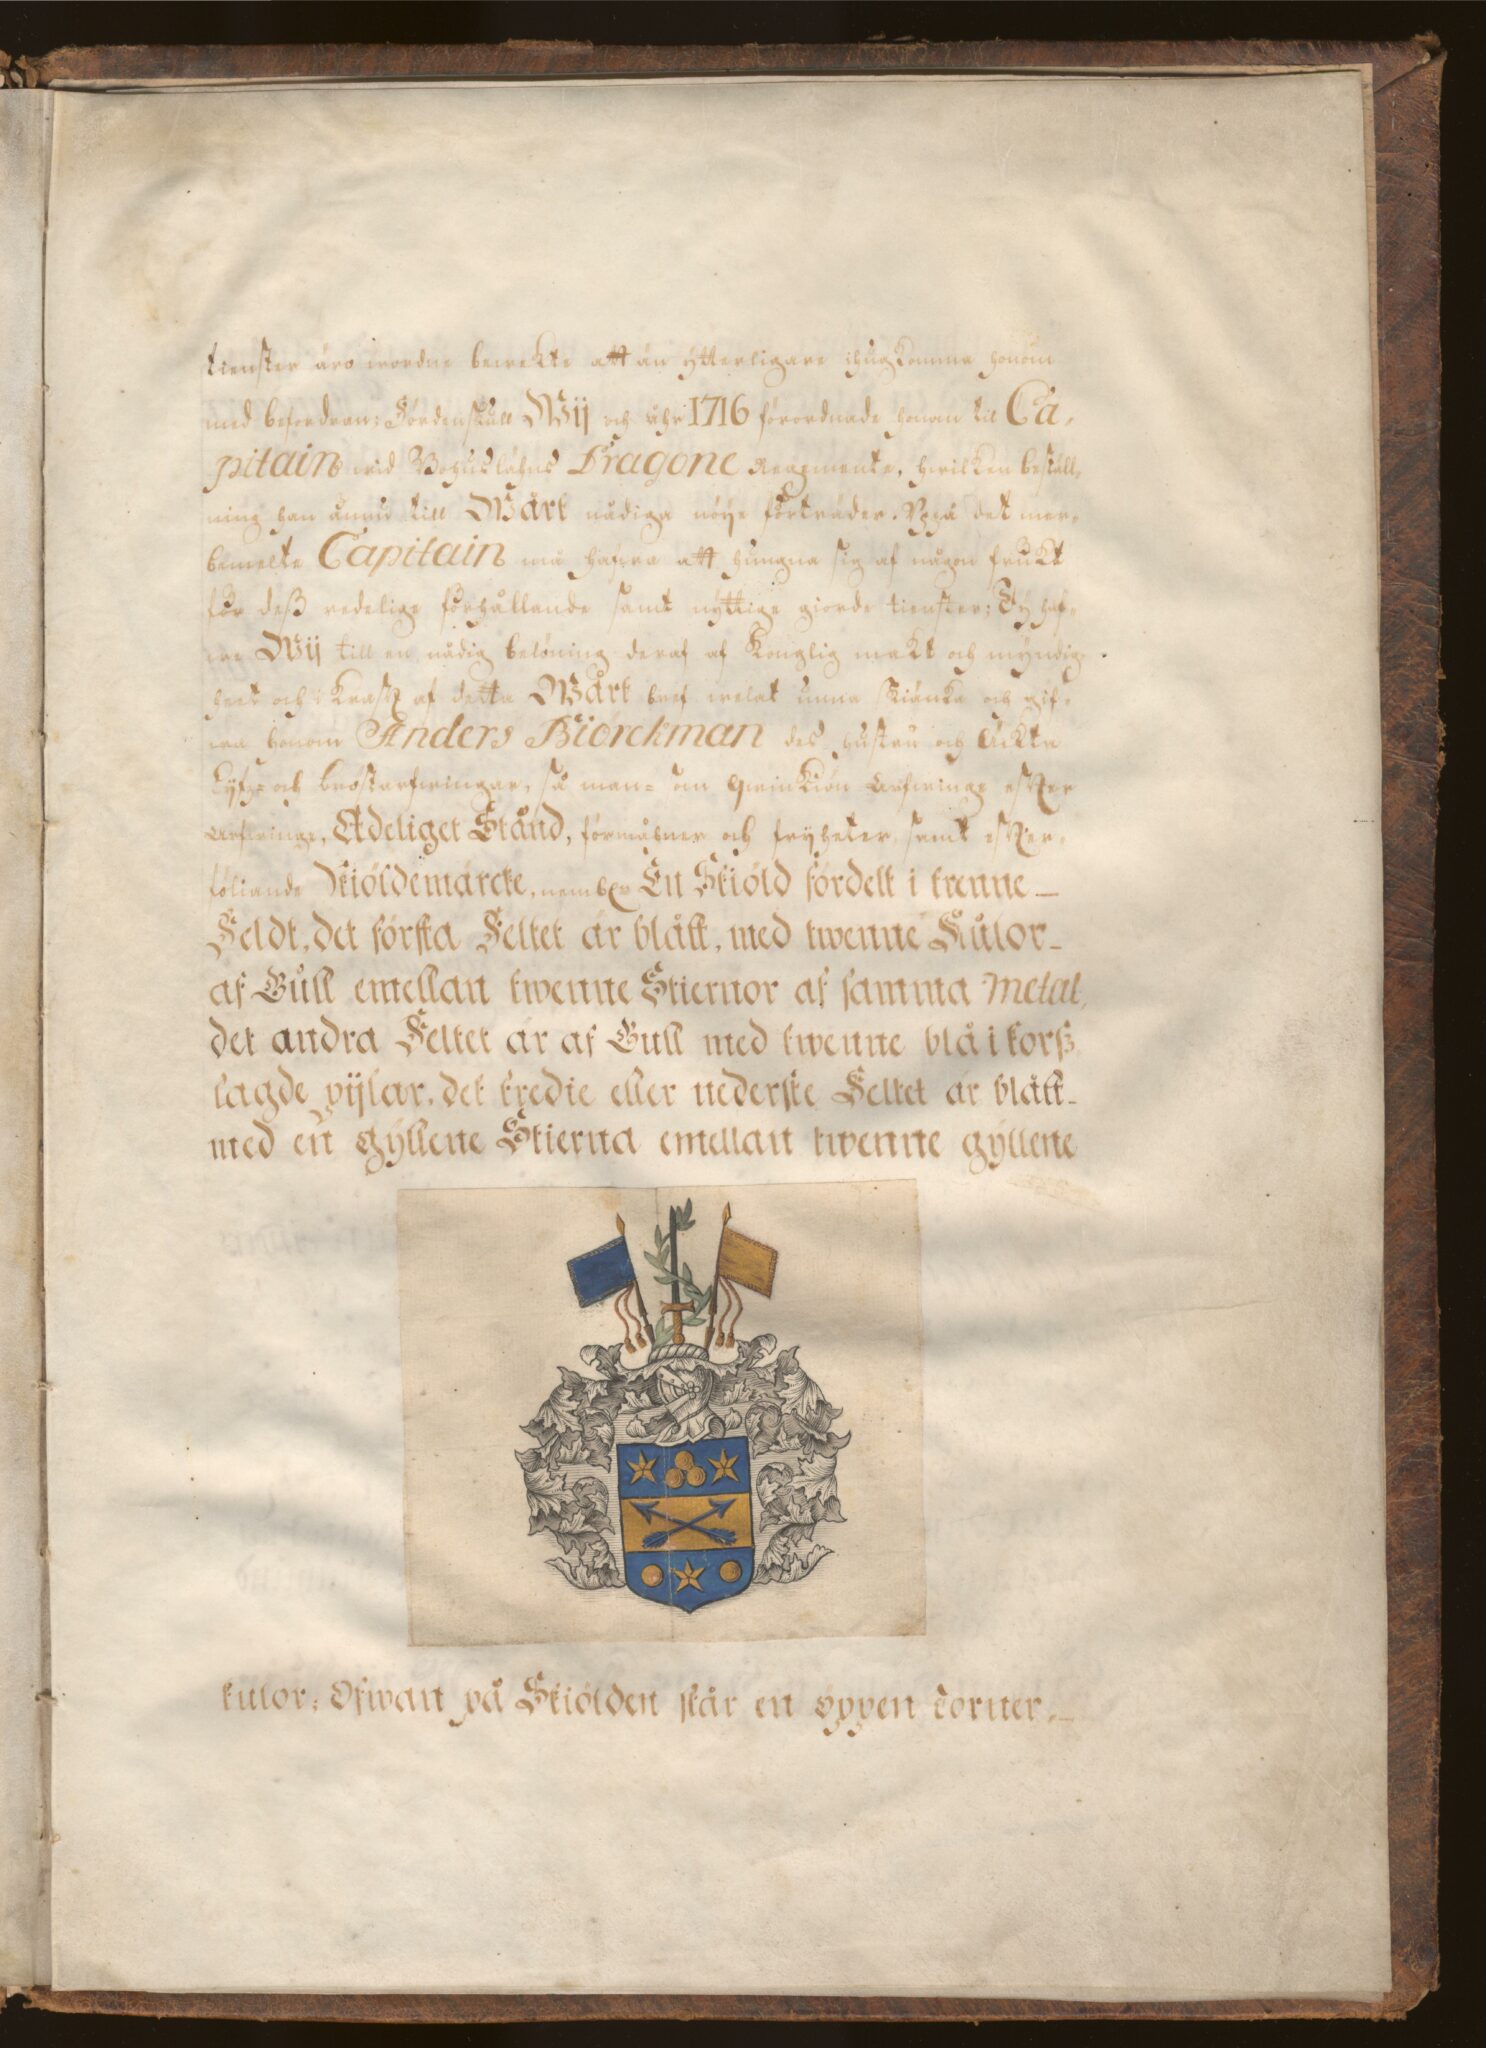 tienster äro wordne bewekte att än ytterligare ihugkomma honom
med befordran: Fördenskull Wij och åhr 1716 förordnade honom til Ca-
pitain wid Bohuslähns Dragone Regemente, hwilken beställ-
ning han ännu till Wårt nådiga nöye förträder. Uppå det mer-
bemelte Capitain må hafwa att hugna sig af någon frukt
för deß redelige förhållande samt nyttige giorde tienster; Ty haf-
we Wij till en nådig belöning deraf af Konglig makt och myndig-
heet och i krafft af detta Wårt bref welat unna skiänka och gif-
wa honom Anders Biörckman des hustru och Äckta
Lijfz- och bröstarfwingar, så man- som qwinkiön Arfwinge effter
Arfwinge, Adeliget Stånd, förmåner och fryheter, samt effter-
föliande Skiöldemärcke, nembl. En Skiöld fördelt i trenne
Feldt, det första Feltet är blått, med twenne Kulor
af Gull emellan twenne Stiernor af samma Metal,
det andra Feltet är af Gull med twenne blå i korß
lagde pijlar, det tredie eller nederste Feltet är blått
med en gyllene Stierna emellan twenne gyllene
kulor; Ofwan på Skiölden står en öppen torner-